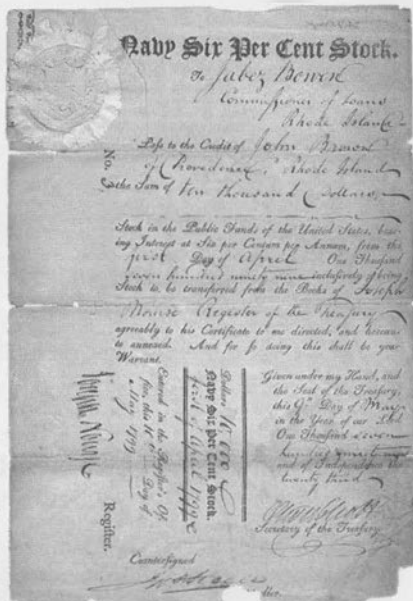 Navy Six Per Cent Stock.
To Jabez Bowen
Commissioner of Loans
Rhode Island
Pass to the Credit of John Brown
of Providence, Rhode Island
the Sum of ten thousand Dollars,
Stock in the Public Funds of the United States, bear-
ing Interest at Six per Centum per Annum, from the
first Day of April One Thousand
seven hundred ninety nine inclusively of being
Stock to be transferred from the Books of Joseph
Nourse Register of the Treasury
agreeably to his Certificate to me directed, and hereun-
to annexed. And for so doing this shall be your
Warrant.
Given under my Hand, and
the Seal of the Treasury,
this Day of May
in the Year of our Lord
One Thousand seven
hundred ninety nine
and of Independence the
twenty third
Secretary of the Treasury.
Countersigned
No.
Dollars
Navy Six Per Cent Stock.
first of April 1799
Entered in the Register's Of-
fice, this Day of
May 1799
Joseph Nourse
Register.